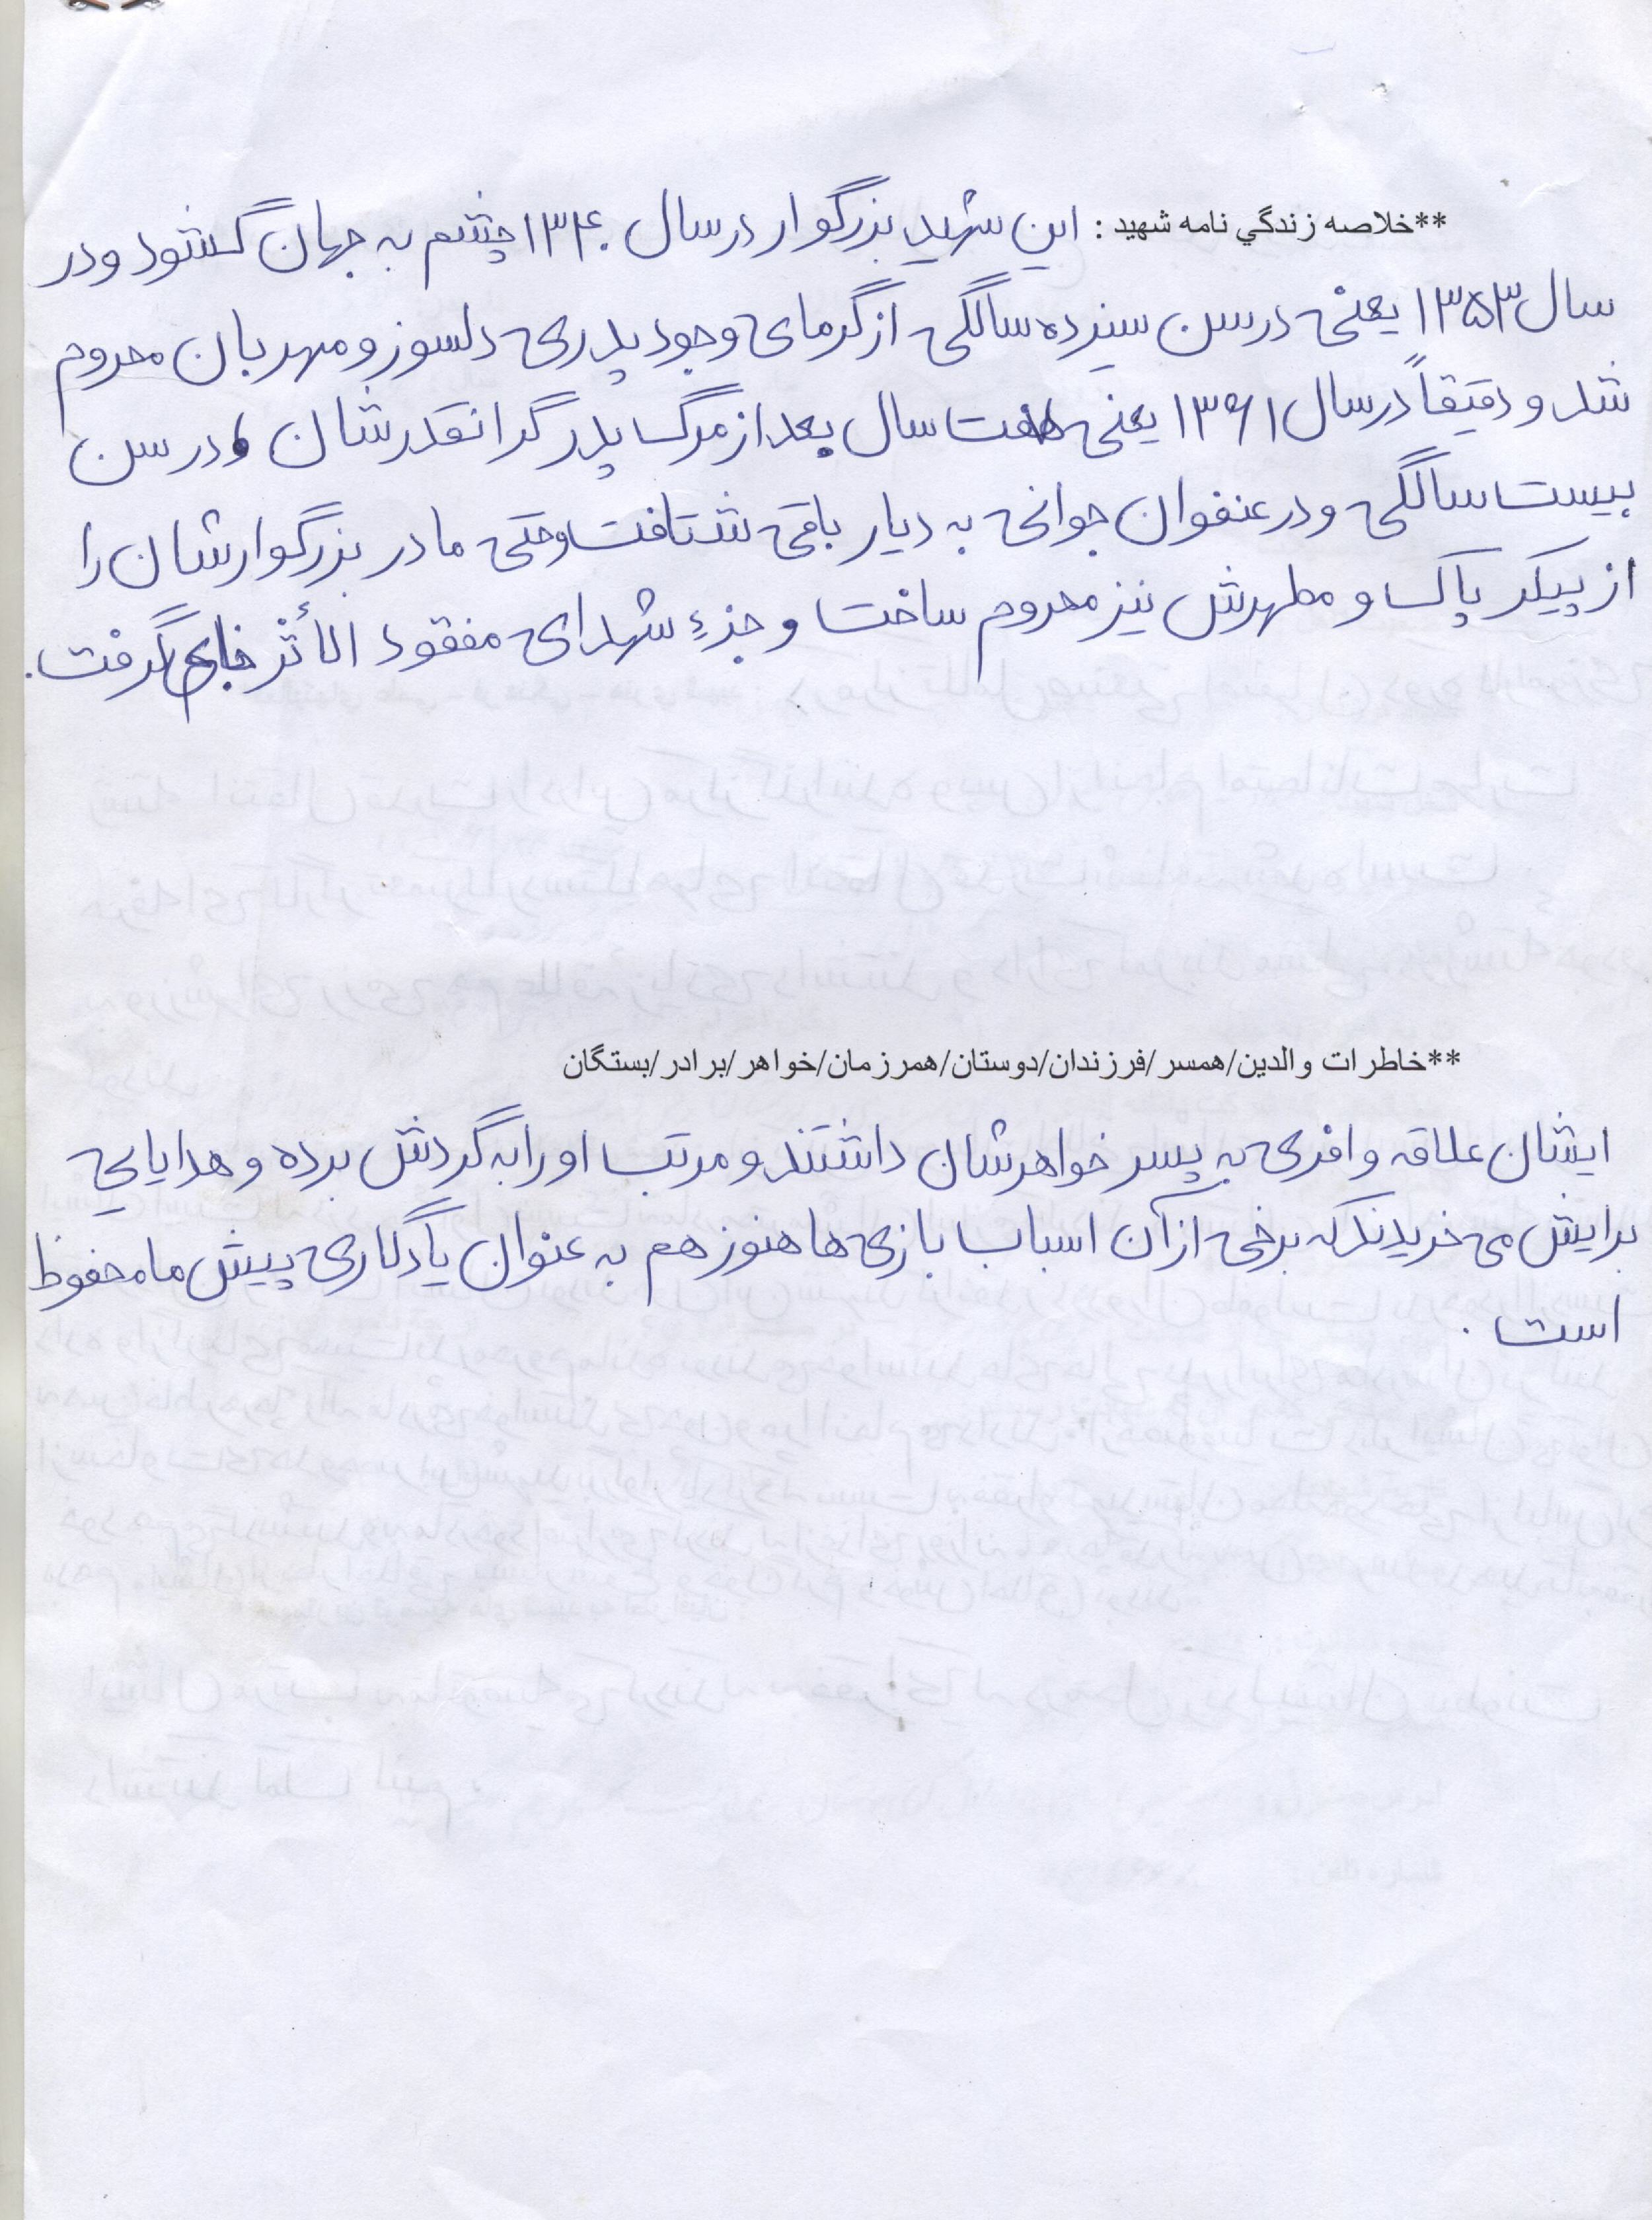 **خلاصه زندگي نامه شهيد : این شهید بزرگوار در سال ۱۳۴۰ چشم به جهان گشود و در
سال ۱۳۵۳ یعنی در سن سیزده سالگی از گرمای وجود پدری دلسوز و مهربان محروم
شد و دقیقاً در سال ۱۳۶۱ یعنی هفت سال بعد از مرگ پدر گرانقدرشان ، در سن
بیست سالگی و در عنفوان جوانی به دیار باقی شتافت و حتی مادر بزرگوارشان را
از پیکر پاک و مطهرش نیز محروم ساخت و جزءِ شهدای مفقود الأثر جای گرفت.
**خاطرات والدين/همسر/فرزندان/دوستان/همرزمان/خواهر/برادر/بستگان
ایشان علاقه وافری به پسر خواهرشان داشتند و مرتب او را به گردش برده و هدایایی
برایش می خریدند که برخی از آن اسباب بازی ها هنوز هم به عنوان یادگاری پیش ما محفوظ
است .